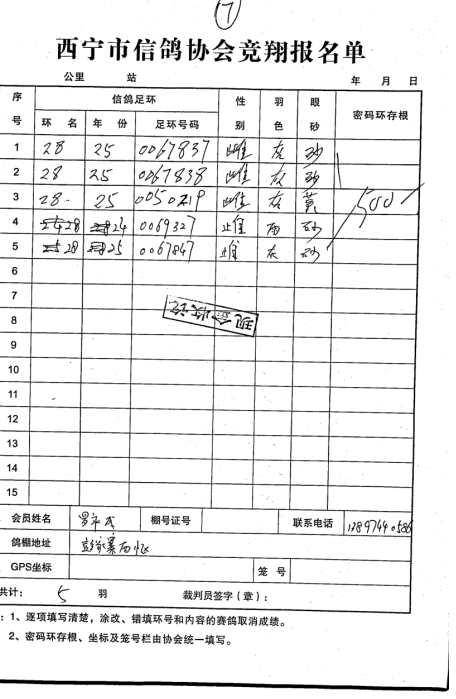 17
西宁市信鸽协会竞翔报名单
公里 站 年 月 日
序号 信鸽足环 性别 羽色 眼砂 密码环存根
环 名 年 份 足环号码
1 28 25 0067837 雌 灰 砂
2 28 25 0067838 雌 灰 砂
3 28 25 0050219 雌 灰 黄 500
4 28 24 0069327 雄 雨 砂
5 28 25 0067847 雄 灰 砂
6
7
8
现金收讫
9
10
11
12
13
14
15
会员姓名 罗 棚号证号 联系电话 13897440586
鸽棚地址 彭家寨西
GPS坐标 笼 号
共计: 5 羽 裁判员签字(章):
:1、逐项填写清楚,涂改、错填环号和内容的赛鸽取消成绩。
2、密码环存根、坐标及笼号栏由协会统一填写。